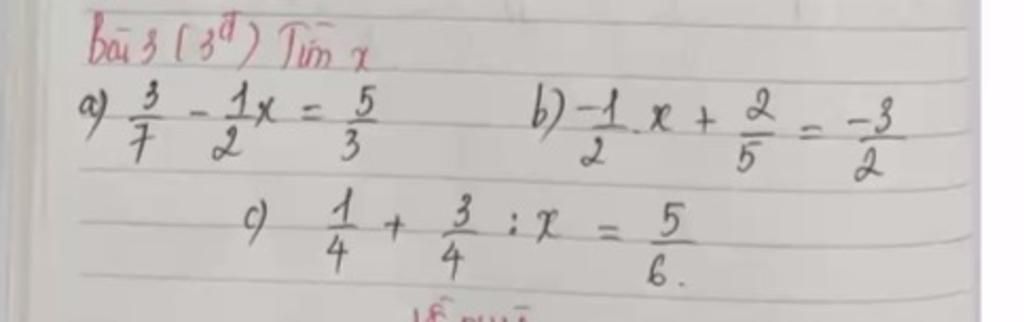 Bài 3 (3đ) Tìm x
a) 3/7 - 1/2 x = 5/3 b) -1/2 . x + 2/5 = -3/2
c) 1/4 + 3/4 : x = 5/6.